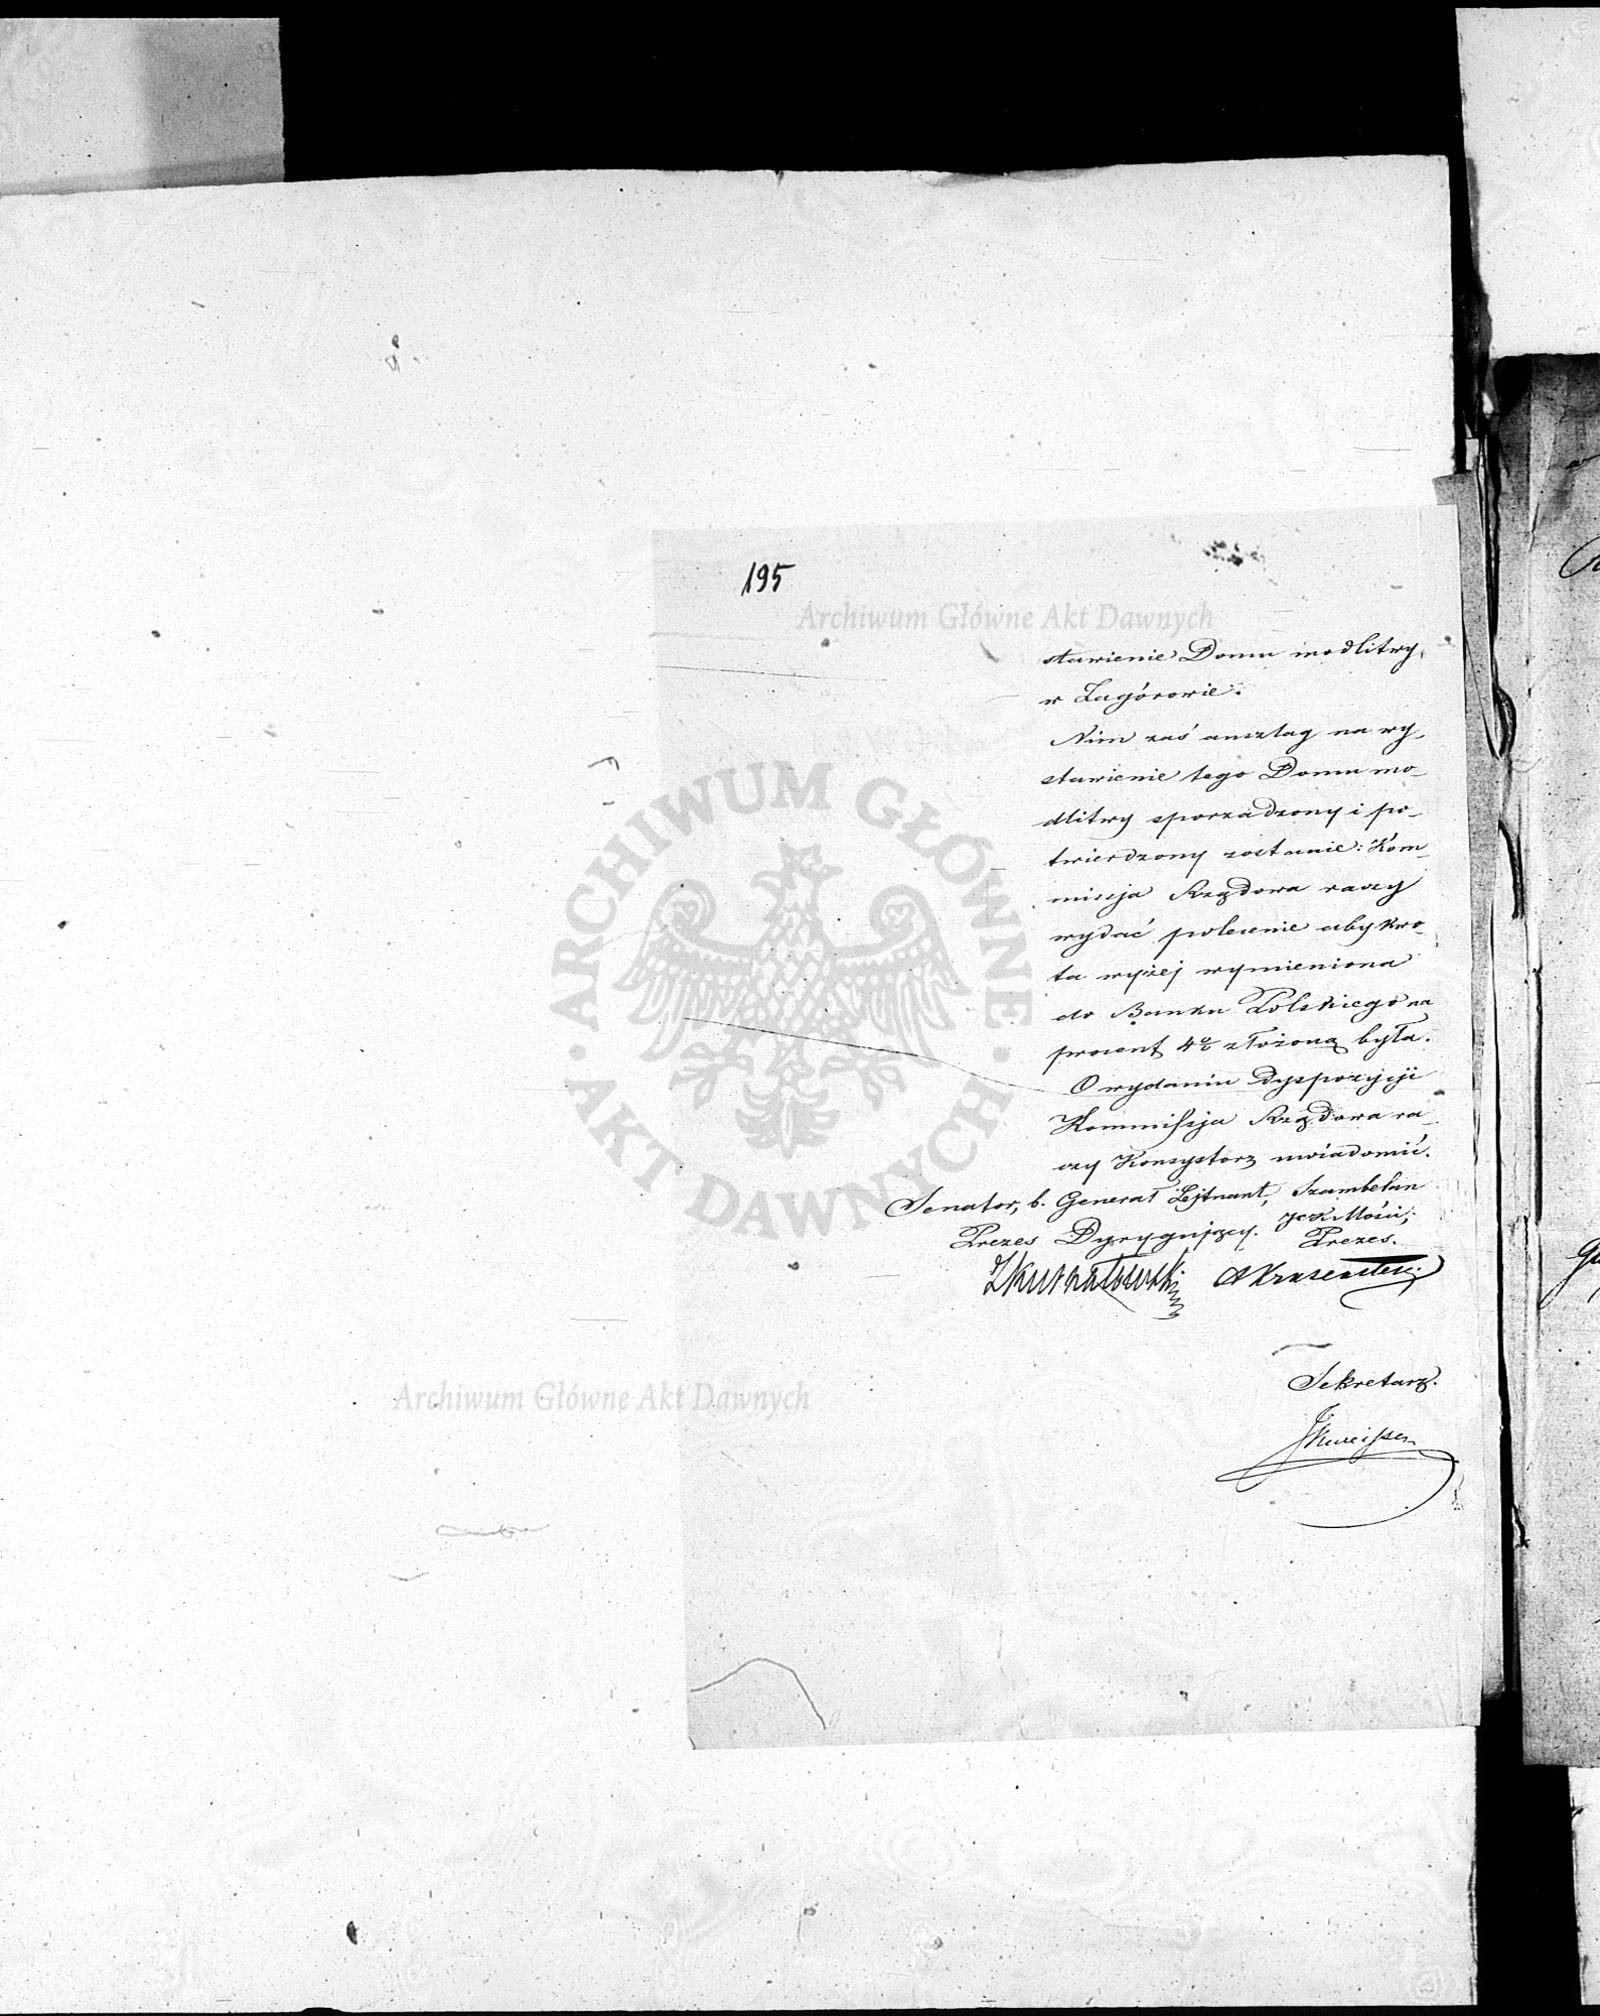 195
Archiwum Główne Akt Dawnych
stawienie Domu modlitwy
w Zagórowie.
Nim zaś anszlag na wy-
stawienie tego Domu mo-
dlitwy sporządzony i po-
twierdzony zostanie: Kom-
missja Rządowa raczy
wydać polecenie aby kwo-
ta wyżej wymieniona
do Banku Polskiego na
procent 4% złożoną była.
O wydaniu dyspozycji
Kommissja Rządowa ra-
czy Konsystorz uwiadomić.
Senator, b. Generał Lejtnant, Szambelan
JCK Mości,
Prezes Dyrygujący. Prezes.
Sekretarz.
ARCHIWUM GŁÓWNE
AKT DAWNYCH
Archiwum Główne Akt Dawnych